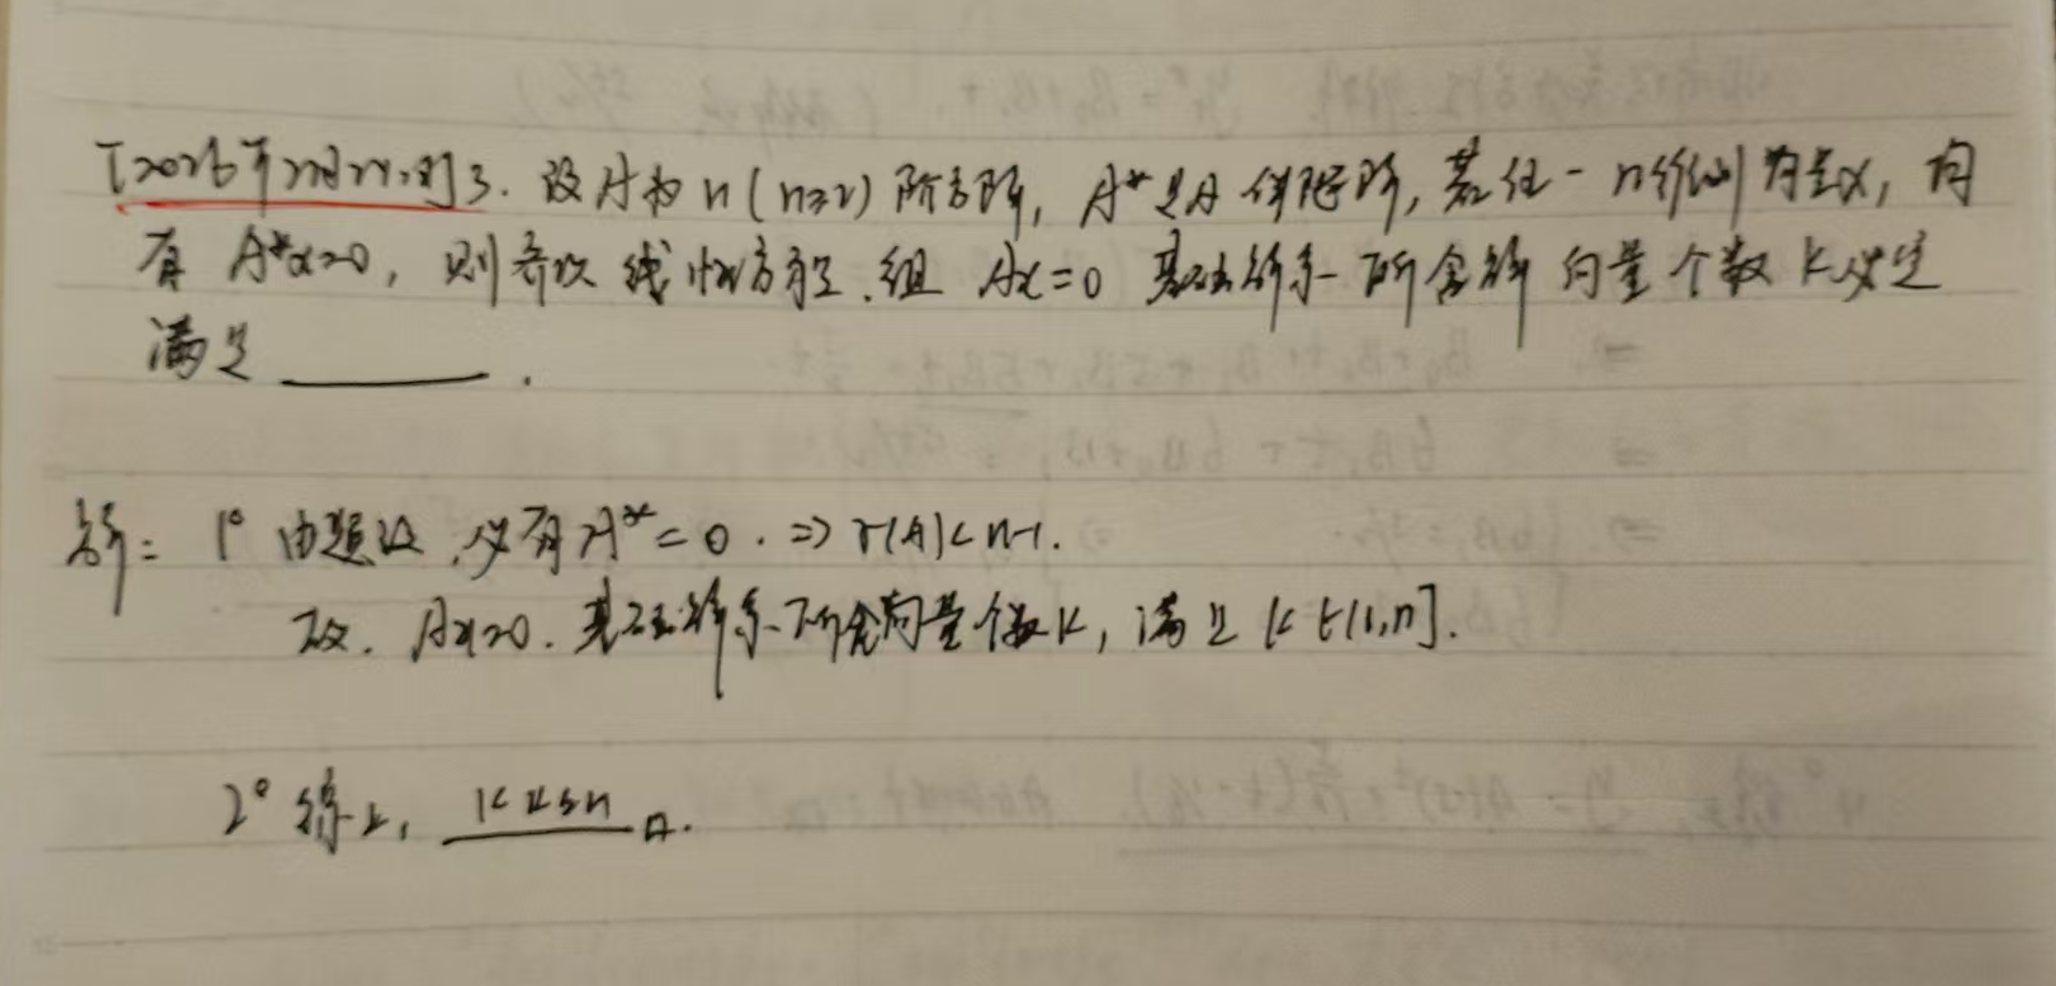 [2026年2月24日]3. 设A为n(n≥2)阶方阵, A*是A伴随阵, 若任一n维列向量α, 均
有 A*α=0, 则齐次线性方程组 Ax=0 基础解系所含解向量个数k必定
满足 ______.
解: 1° 由题设, 必有A*=0. ⇒ r(A)<n-1.
故. Ax=0. 基础解系所含向量个数k, 满足 k∈(1,n].
2° 综上, 1<k≤n □.